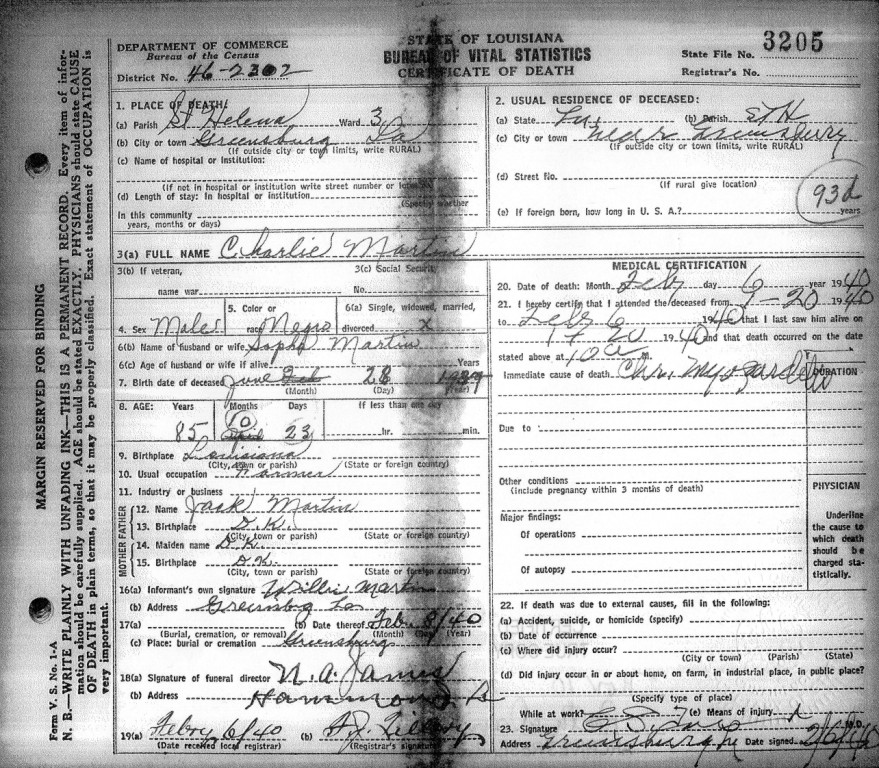 STATE OF LOUISIANA
BUREAU OF VITAL STATISTICS
CERTIFICATE OF DEATH
DEPARTMENT OF COMMERCE
Bureau of the Census
District No. 46-2302
State File No. 3205
Registrar's No.
1. PLACE OF DEATH:
(a) Parish St Helena Ward 3
(b) City or town Greensburg La
(If outside city or town limits, write RURAL)
(c) Name of hospital or Institution:
(If not in hospital or institution write street number or
(d) Length of stay: In hospital or institution
(Specify whether
In this community
years, months or days)
2. USUAL RESIDENCE OF DECEASED:
(a) State La (b) Parish St H
(c) City or town near Greensburg
(If outside city or town limits, write RURAL)
(d) Street No.
(If rural give location)
93d
(e) If foreign born, how long in U. S. A.? years
3(a) FULL NAME Charlie Martin
3(b) If veteran,
name war
3(c) Social Security
No.
4. Sex Male
5. Color or
race Negro
6(a) Single, widowed, married,
divorced x
6(b) Name of husband or wife Martin
6(c) Age of husband or wife if alive Years
7. Birth date of deceased June Feb 28
(Month) (Day) (Year)
8. AGE: Years Months Days If less than one day
85 10 23 hr. min.
9. Birthplace Louisiana
(City, town or parish) (State or foreign country)
10. Usual occupation Farmer
11. Industry or business
FATHER
12. Name Jack Martin
13. Birthplace D.K.
(City, town or parish) (State or foreign country)
MOTHER
14. Maiden name D.K.
15. Birthplace D.K.
(City, town or parish) (State or foreign country)
16(a) Informant's own signature Willie Martin
(b) Address Greensbg La
17(a) (b) Date thereof Feb 8/40
(Burial, cremation, or removal) (Month) (Day) (Year)
(c) Place: burial or cremation Greensburg
18(a) Signature of funeral director N. A. James
(b) Address Hammond La
19(a) Febry 6/40 (b)
(Date received local registrar) (Registrar's signature)
MEDICAL CERTIFICATION
20. Date of death: Month Feb day 6 year 1940
21. I hereby certify that I attended the deceased from 1-20 1940
to Feb 6 1940 that I last saw him alive on
1-20 1940 and that death occurred on the date
stated above at 10 a m.
Immediate cause of death Chr. Myocarditis
DURATION
Due to
Other conditions
(include pregnancy within 3 months of death)
Major findings:
Of operations
Of autopsy
PHYSICIAN
Underline
the cause to
which death
should be
charged sta-
tistically.
22. If death was due to external causes, fill in the following:
(a) Accident, suicide, or homicide (specify)
(b) Date of occurrence
(c) Where did injury occur?
(City or town) (Parish) (State)
(d) Did injury occur in or about home, on farm, in industrial place, in public place?
(Specify type of place)
While at work? (e) Means of injury
23. Signature M.D.
Address Greensburg La Date signed 2/6/40
MARGIN RESERVED FOR BINDING
Form V. S. No. 1-A
N. B.—WRITE PLAINLY WITH UNFADING INK—THIS IS A PERMANENT RECORD. Every item of infor-
mation should be carefully supplied. AGE should be stated EXACTLY. PHYSICIANS should state CAUSE
OF DEATH in plain terms, so that it may be properly classified. Exact statement of OCCUPATION is
very important.